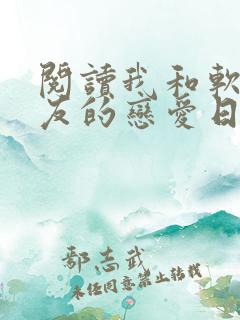 閱讀我和軟
友的戀愛日
鄢志武
未經同意禁止轉載